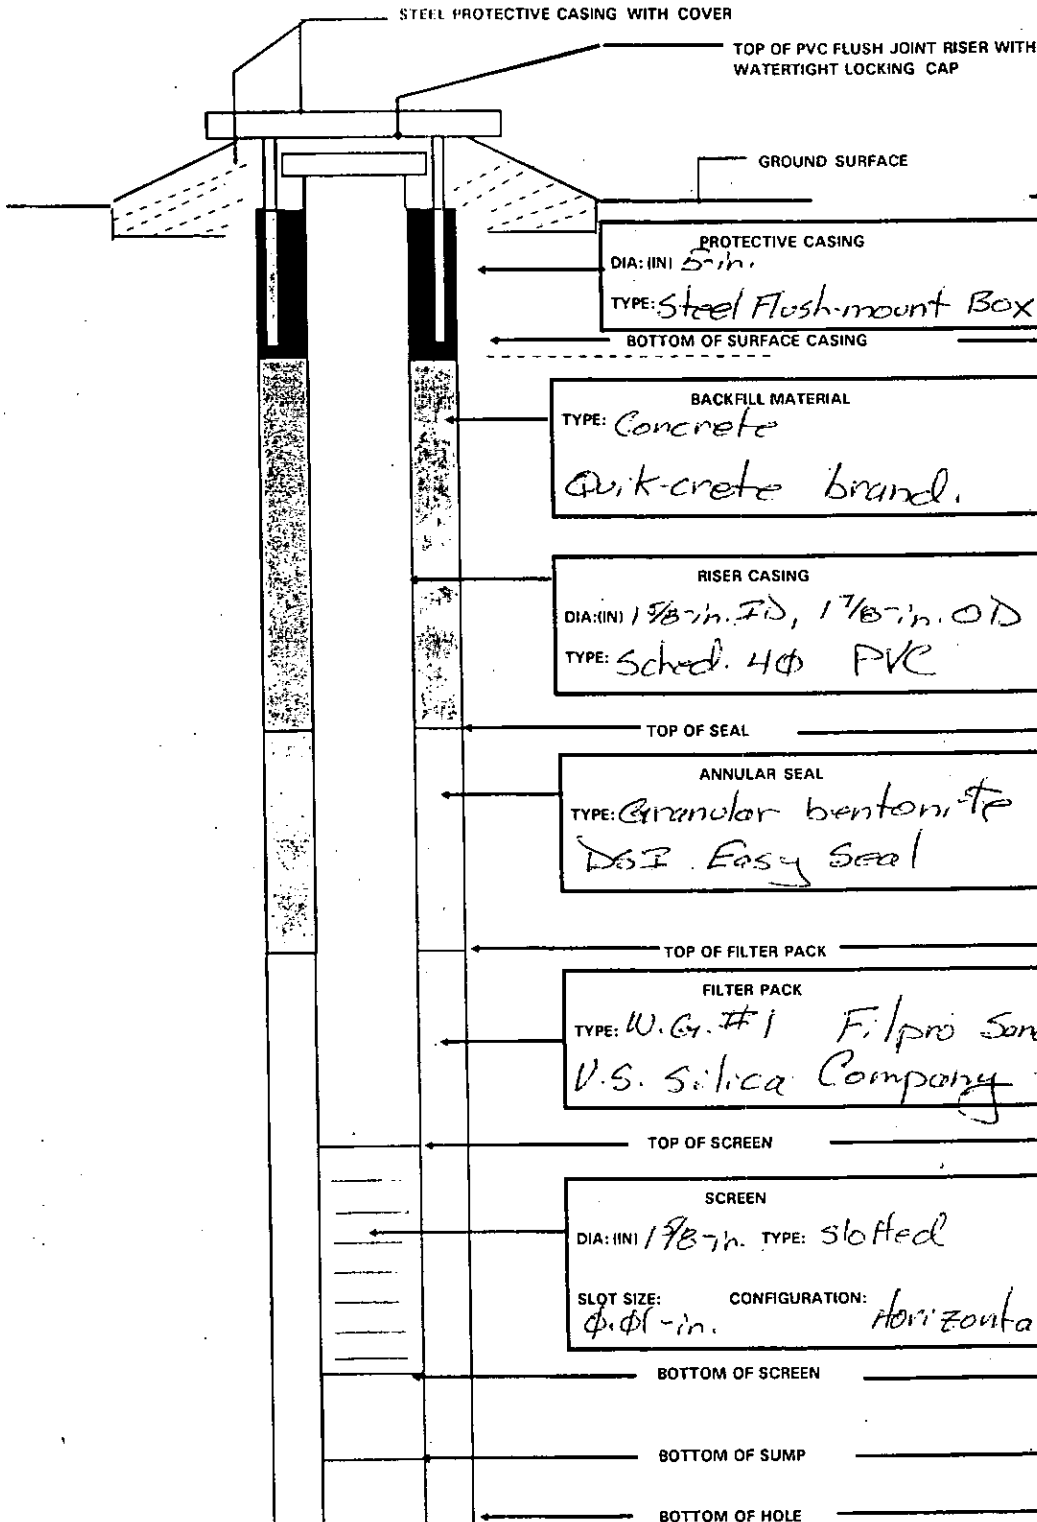 STEEL PROTECTIVE CASING WITH COVER
TOP OF PVC FLUSH JOINT RISER WITH
WATERTIGHT LOCKING CAP
GROUND SURFACE
PROTECTIVE CASING
DIA: (IN) 5-in.
TYPE: Steel Flush-mount Box
BOTTOM OF SURFACE CASING
BACKFILL MATERIAL
TYPE: Concrete
Quik-crete brand.
RISER CASING
DIA:(IN) 1 5/8-in. ID, 1 7/8-in. OD
TYPE: Sched. 40 PVC
TOP OF SEAL
ANNULAR SEAL
TYPE: Granular bentonite
DSI Easy Seal
TOP OF FILTER PACK
FILTER PACK
TYPE: W.G. #1 Filpro San
U.S. Silica Company
TOP OF SCREEN
SCREEN
DIA: (IN) 1 5/8-in. TYPE: Slotted
SLOT SIZE: CONFIGURATION:
0.01-in. Horizonta
BOTTOM OF SCREEN
BOTTOM OF SUMP
BOTTOM OF HOLE